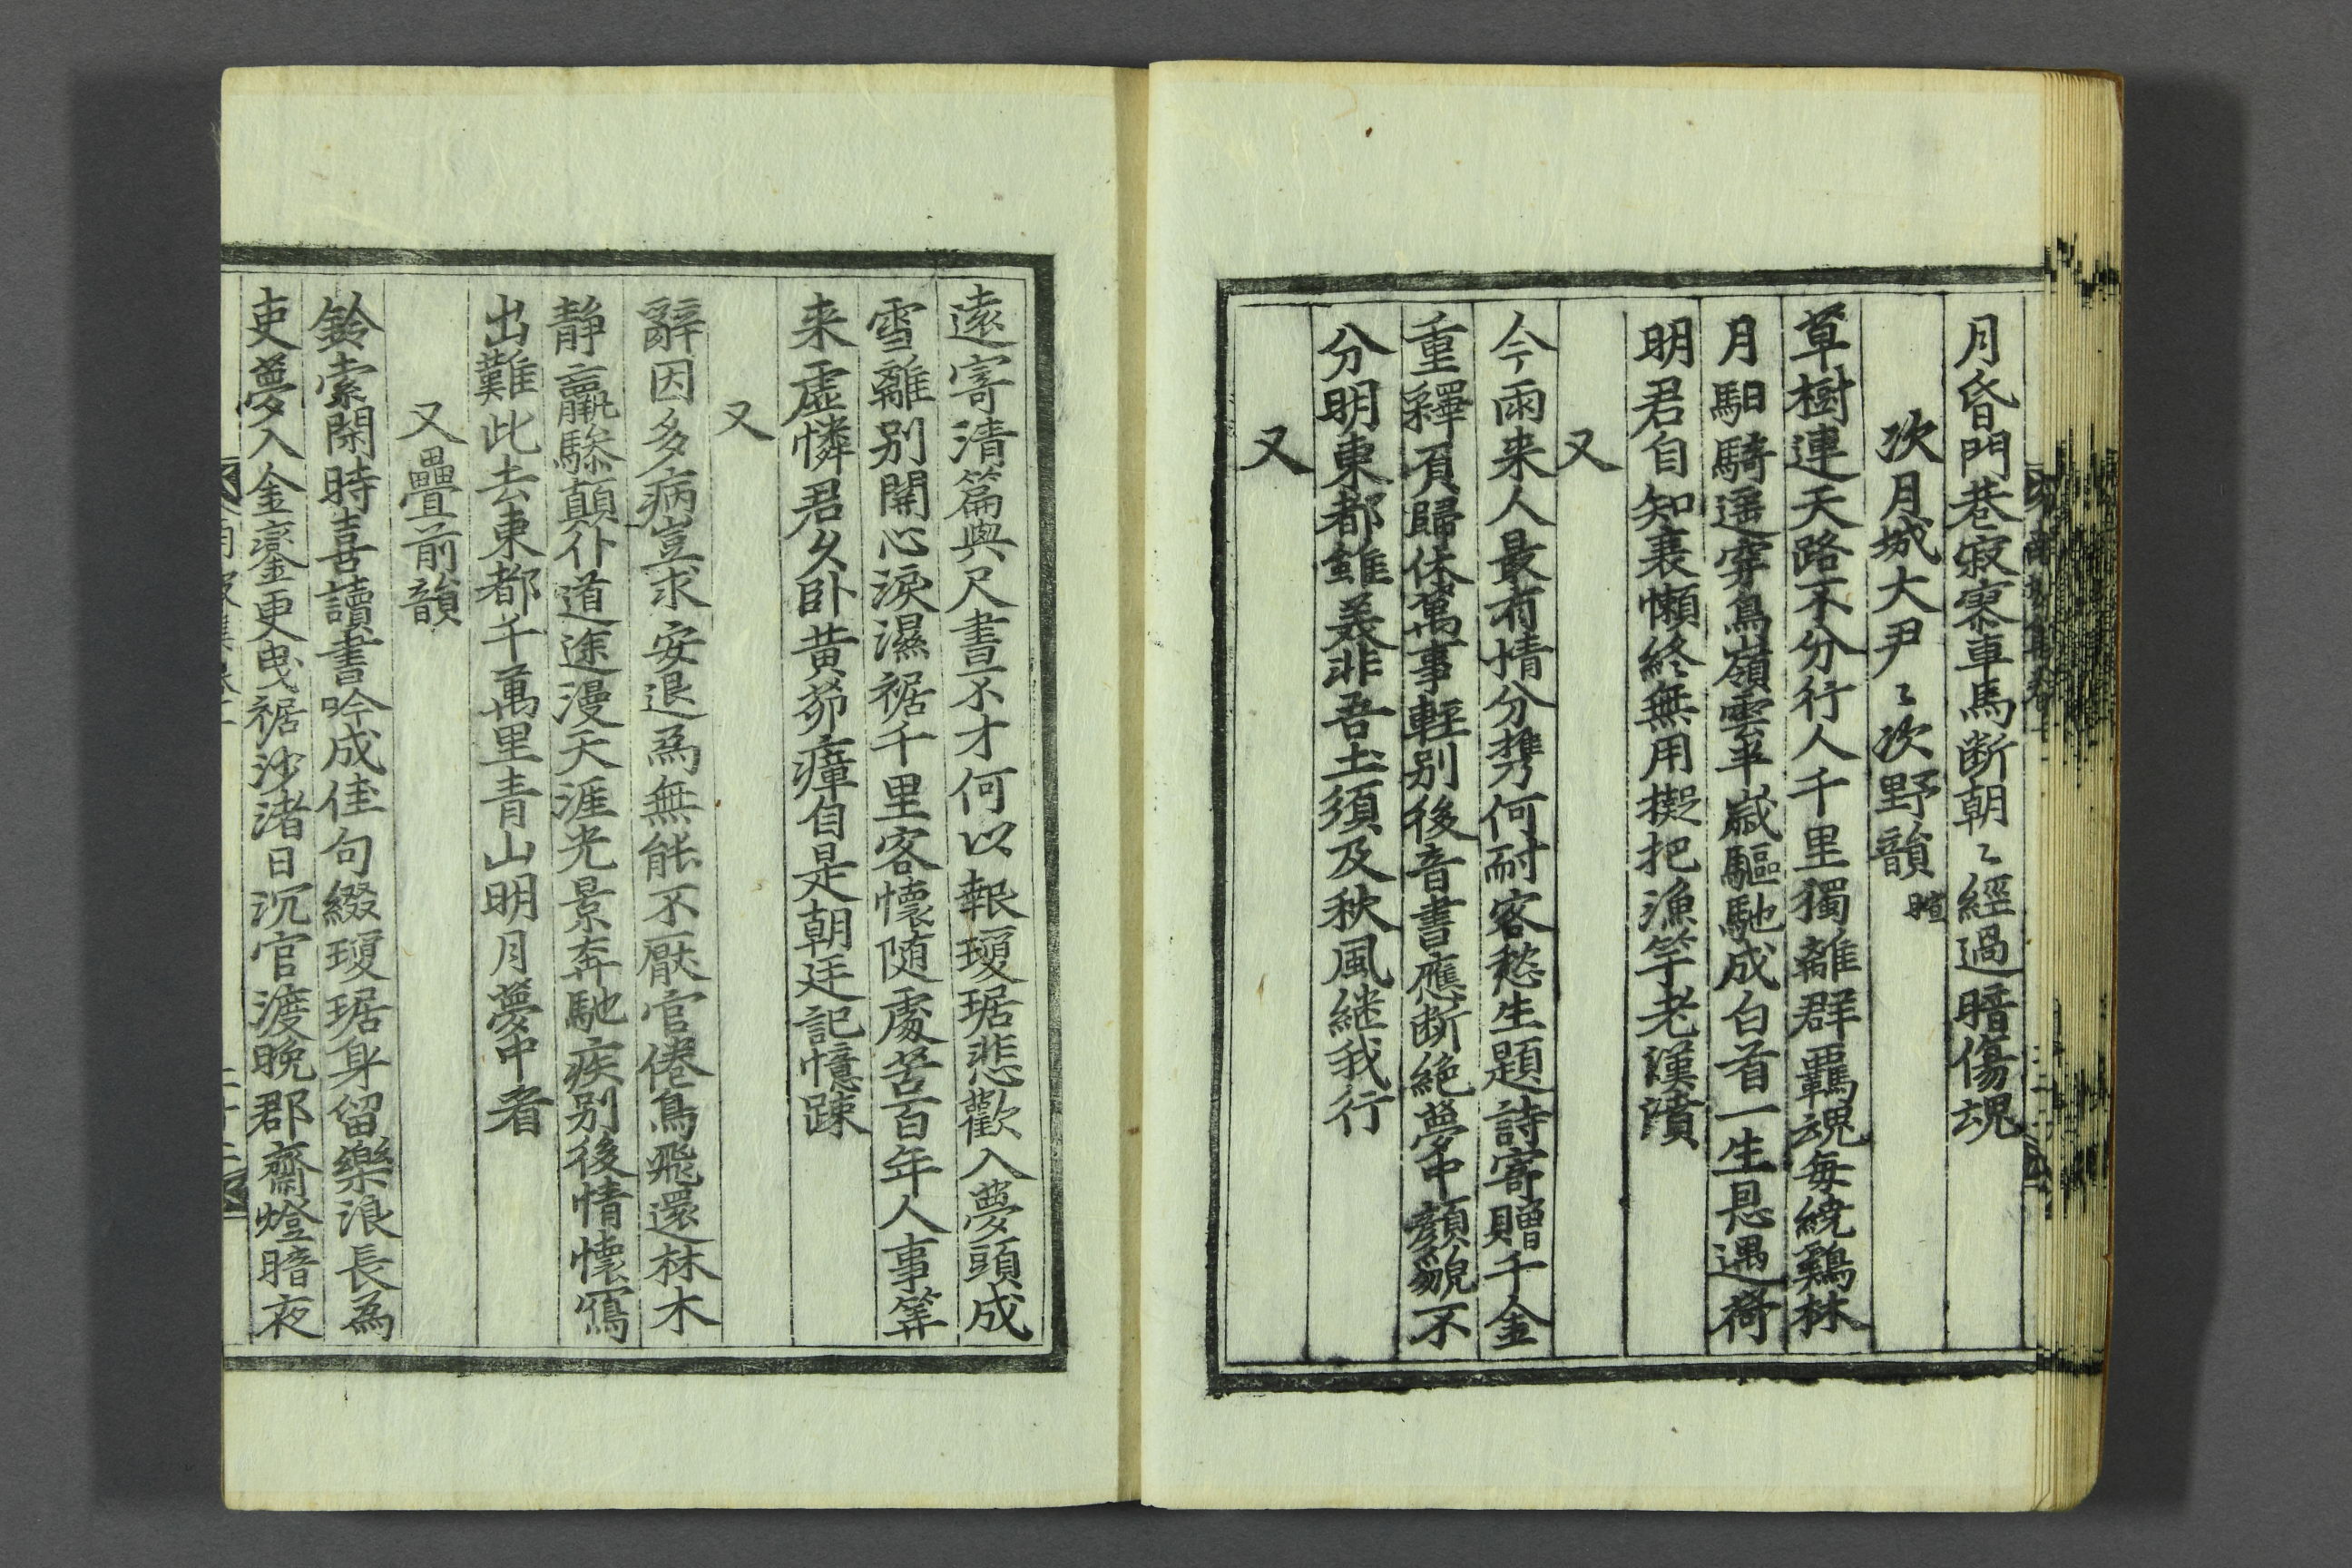 月昏門巷寂寥車馬断朝〻經過暗傷魂
次月城大尹〻次野韻 暄
草樹連天路不分行人千里獨離群羈魂每繞鷄林
月馹騎遥穿鳥嶺雲半歲驅馳成白首一生恩遇荷
明君自知衰懶終無用擬把漁竿老漢濆
又
今雨来人最有情分携何耐客愁生題詩寄贈千金
重釋負歸休萬事輕别後音書應断絶夢中顔貌不
分明東都雖美非吾土須及秋風継我行
又
遠寄清篇與尺書不才何以報瓊琚悲歡入夢頭成
雪離别開心淚濕裾千里客懷随處苦百年人事筭
来虛憐君久卧黄茆瘴自是朝廷記憶踈
又
辭因多病豈求安退為無能不厭官倦鳥飛還林木
静羸驂顛仆道途漫天涯光景奔馳疾别後情懷寫
出難此去東都千萬里青山明月夢中看
又疊前韻
鈴索閑時喜讀書吟成佳句綴瓊琚身留樂浪長為
吏夢入金鑾更曳裾沙渚日沉官渡晩郡齋燈暗夜